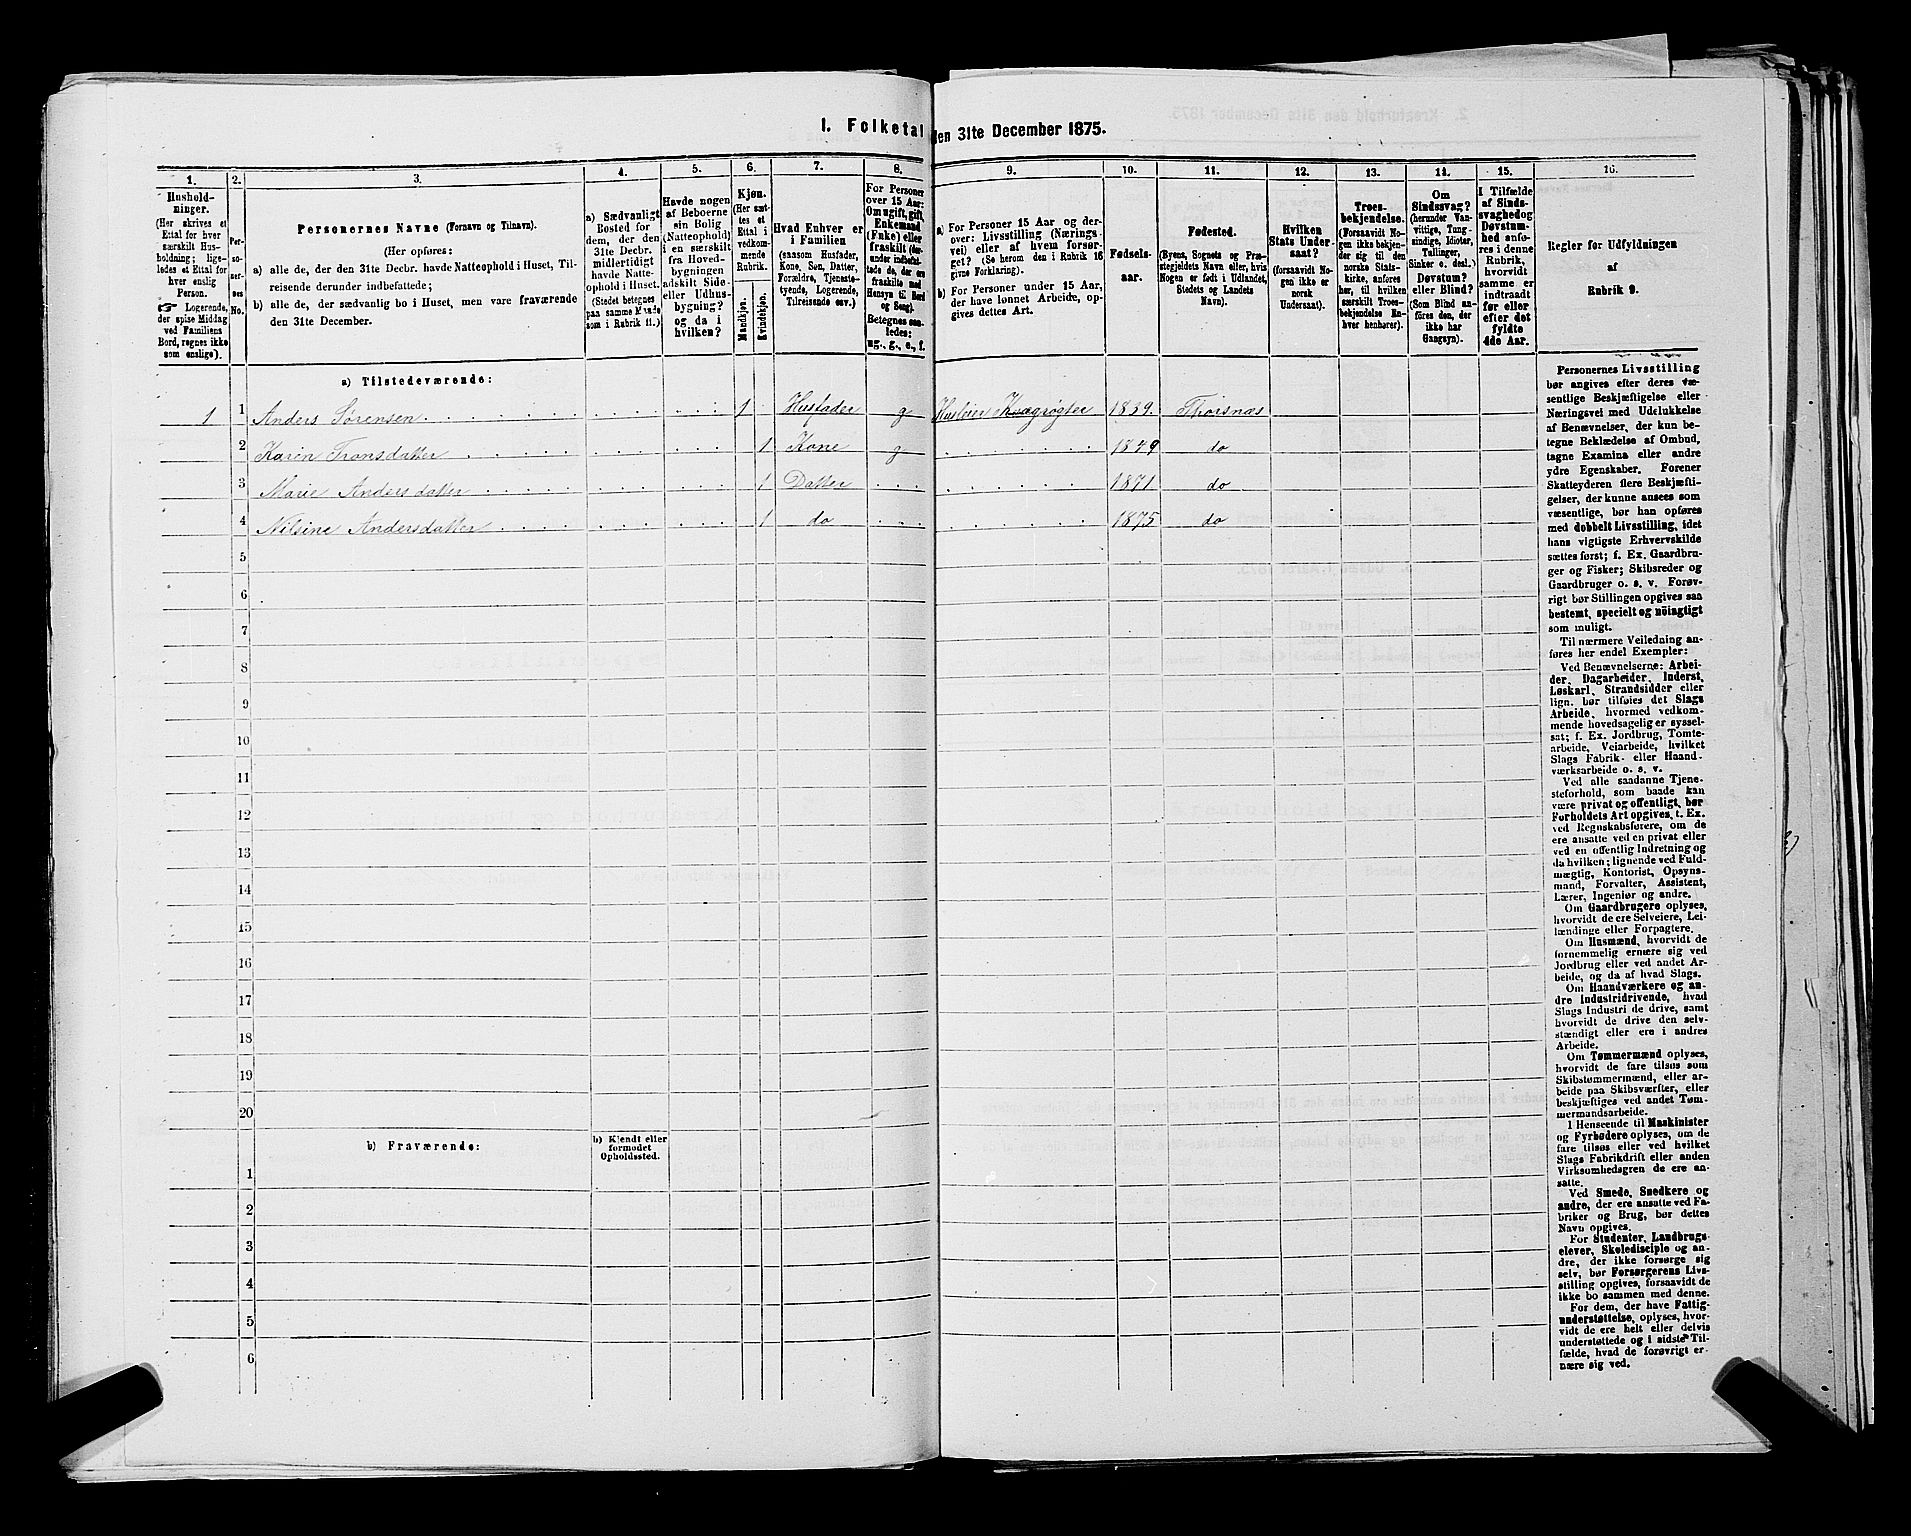 I. Folketal den 31te December 1875.
1.
Hushold-
ninger.
(Her skrives et
Ettal for hver
særskilt Hus-
holdning; lige-
ledes et Ettal for
hver enslig
Person.
☞ Logerende,
der spise Middag
ved Familiens
Bord, regnes ikke
som enslige).
2.
Per-
so-
ner-
nes
No.
3.
Personernes Navne (Fornavn og Tilnavn).
(Her opføres:
a) alle de, der den 31te Decbr. havde Natteophold i Huset, Til-
reisende derunder indbefattede;
b) alle de, der sædvanlig bo i Huset, men vare fraværende
den 31te December.
4.
a) Sædvanligt
Bosted for
dem, der den
31te Decbr.
midlertidigt
havde Natte-
ophold i Huset.
(Stedet betegnes
paa samme Maade
som i Rubrik 11.)
5.
Havde nogen
af Beboerne
sin Bolig
(Natteophold)
i en særskilt
fra Hoved-
bygningen
adskilt Side-
eller Udhus-
bygning?
og da i
hvilken?
6.
Kjøn.
(Her sæt-
tes et
Ettal i
vedkom-
mende
Rubrik.
Mandkjøn.
Kvindekjøn.
7.
Hvad Enhver er
i Familien
(saasom Husfader,
Kone, Søn, Datter,
Forældre, Tjeneste-
tyende, Logerende,
Tilreisende osv.)
8.
For Personer
over 15 Aar:
Om ugift, gift,
Enkemand
(Enke) eller
fraskilt (der-
under indbefat-
tede de, der ere
fraskilte med
Hensyn til Bord
og Seng).
Betegnes saa-
ledes:
ug., g., e., f.
9.
a) For Personer 15 Aar og der-
over: Livsstilling (Nærings-
vei) eller af hvem forsør-
get? (Se herom den i Rubrik 16
givne Forklaring).
b) For Personer under 15 Aar,
der have lønnet Arbeide, op-
gives dettes Art.
10.
Fødsels-
aar.
11.
Fødested.
(Byens, Sognets og Præ-
stegjeldets Navn eller, hvis
Nogen er født i Udlandet,
Stedets og Landets
Navn).
12.
Hvilken
Stats Under-
saat?
(forsaavidt No-
gen ikke er
norsk
Undersaat).
13.
Troes-
bekjendelse.
(Forsaavidt No-
gen ikke bekjen-
der sig til den
norske Stats-
kirke, anføres
her, til hvilken
særskilt Troes-
bekjendelse En-
hver henhører).
14.
Om
Sindssvag?
(herunder Van-
vittige, Tung-
sindige, Idioter,
Tullinger,
Sinker o. desl.)
Døvstum?
eller Blind?
(Som Blind an-
føres den, der
ikke har
Gangsyn).
15.
I Tilfælde
af Sinds-
svaghed og
Døvstum-
hed anfø-
res i denne
Rubrik,
hvorvidt
samme er
indtraadt
før eller
efter det
fyldte
4de Aar.
16.
Regler for Udfyldningen
af
Rubrik 9.
a) Tilstedeværende:
1 1 Anders Sørensen 1 Husfader g Husleier Kvægrøgter 1839. Thorsnæs
2 Karen Transdatter 1 Kone g 1849 do
3 Marie Andersdatter 1 Datter 1871 do
4 Nilsine Andersdatter 1 do 1875 do
5
6
7
8
9
10
11
12
13
14
15
16
17
18
19
20
b) Fraværende:
b) Kjendt eller
formodet
Opholdssted.
1
2
3
4
5
6
Personernes Livsstilling
bør angives efter deres væ-
sentlige Beskjæftigelse eller
Næringsvei med Udelukkelse
af Benævnelser, der kun be-
tegne Beklædelse af Ombud,
tagne Examina eller andre
ydre Egenskaber. Forener
Skatteyderen flere Beskjæfti-
gelser, der kunne ansees som
væsentlige, bør han opføres
med dobbelt Livsstilling, idet
hans vigtigste Erhvervskilde
sættes først; f. Ex. Gaardbru-
ger og Fisker; Skibsreder og
Gaardbruger o. s. v. Forøv-
rigt bør Stillingen opgives saa
bestemt, specielt og nøiagtigt
som muligt.
Til nærmere Veiledning an-
føres her endel Exempler:
Ved Benævnelserne: Arbei-
der, Dagarbeider, Inderst,
Løskarl, Strandsidder eller
lign. bør tilføies det Slags
Arbeide, hvormed vedkom-
mende hovedsagelig er syssel-
sat; f. Ex. Jordbrug, Tomte-
arbeide, Veiarbeide, hvilket
Slags Fabrik- eller Haand-
værksarbeide o. s. v.
Ved alle saadanne Tjene-
steforhold, som baade kan
være privat og offentligt, bør
Forholdets Art opgives, t. Ex.
ved Regnskabsførere, om de
ere ansatte ved en privat eller
ved en offentlig Indretning og
da hvilken; lignende ved Fuld-
mægtig, Kontorist, Opsyns-
mand, Forvalter, Assistent,
Lærer, Ingeniør og andre.
Om Gaardbrugere oplyses,
hvorvidt de ere Selveiere, Lei-
lændinge eller Forpagtere.
Om Husmænd, hvorvidt de
fornemmelig ernære sig ved
Jordbrug eller ved andet Ar-
beide, og da af hvad Slags.
Om Haandværkere og an-
dre Industridrivende, hvad
Slags Industri de drive, samt
hvorvidt de drive den selv-
stændigt eller ere i andres
Arbeide.
Om Tømmermænd oplyses,
hvorvidt de fare tilsøs som
Skibstømmermænd, eller ar-
beide paa Skibsværfter, eller
beskjæftiges ved andet Tøm-
mermandsarbeide.
I Henseende til Maskinister
og Fyrbødere oplyses, om de
fare tilsøs eller ved hvilket
Slags Fabrikdrift eller anden
Virksomhedsgren de ere an-
satte.
Ved Smede, Snedkere og
andre, der ere ansatte ved Fa-
briker og Brug, bør dettes
Navn opgives.
For Studenter, Landbrugs-
elever, Skoledisciple og an-
dre, der ikke forsørge sig
selv, bør Forsørgerens Livs-
stilling opgives, forsaavidt de
ikke bo sammen med denne.
For dem, der have Fattig-
understøttelse, oplyses, hvor-
vidt de ere helt eller delvis
understøttede og i sidste Til-
fælde, hvad de forøvrigt er-
nære sig ved.